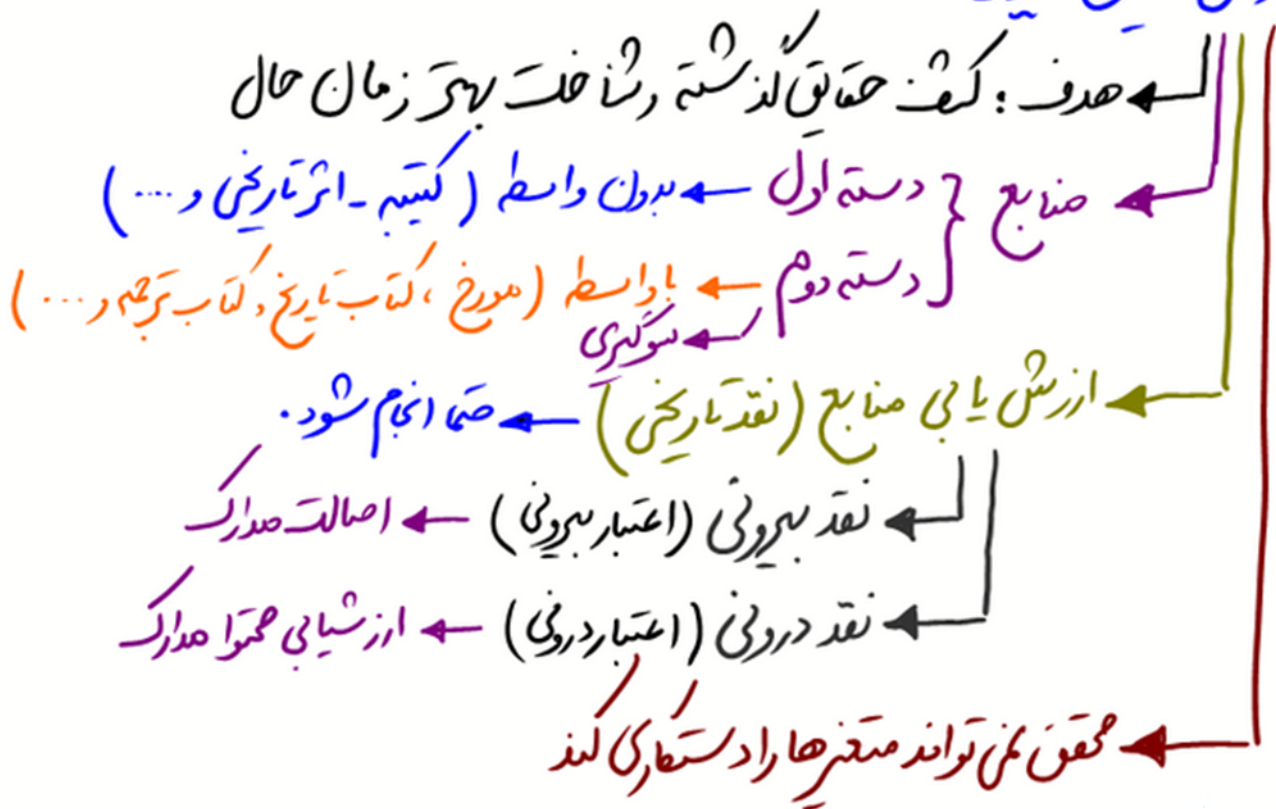 هدف : کشف حقایق گذشته و شناخت بهتر زمان حال
منابع { دسته اول ← بدون واسطه ( کتیبه - اثر تاریخی و .... )
دسته دوم ← باواسطه ( مورخ ، کتاب تاریخ ، کتاب ترجمه و ... )
← سوگیری
ارزش یابی منابع ( نقد تاریخی ) ← حتما انجام شود .
نقد بیرونی ( اعتبار بیرونی ) ← اصالت مدارک
نقد درونی ( اعتبار درونی ) ← ارزشیابی محتوا مدارک
محقق نمی تواند متغیرها را دستکاری کند